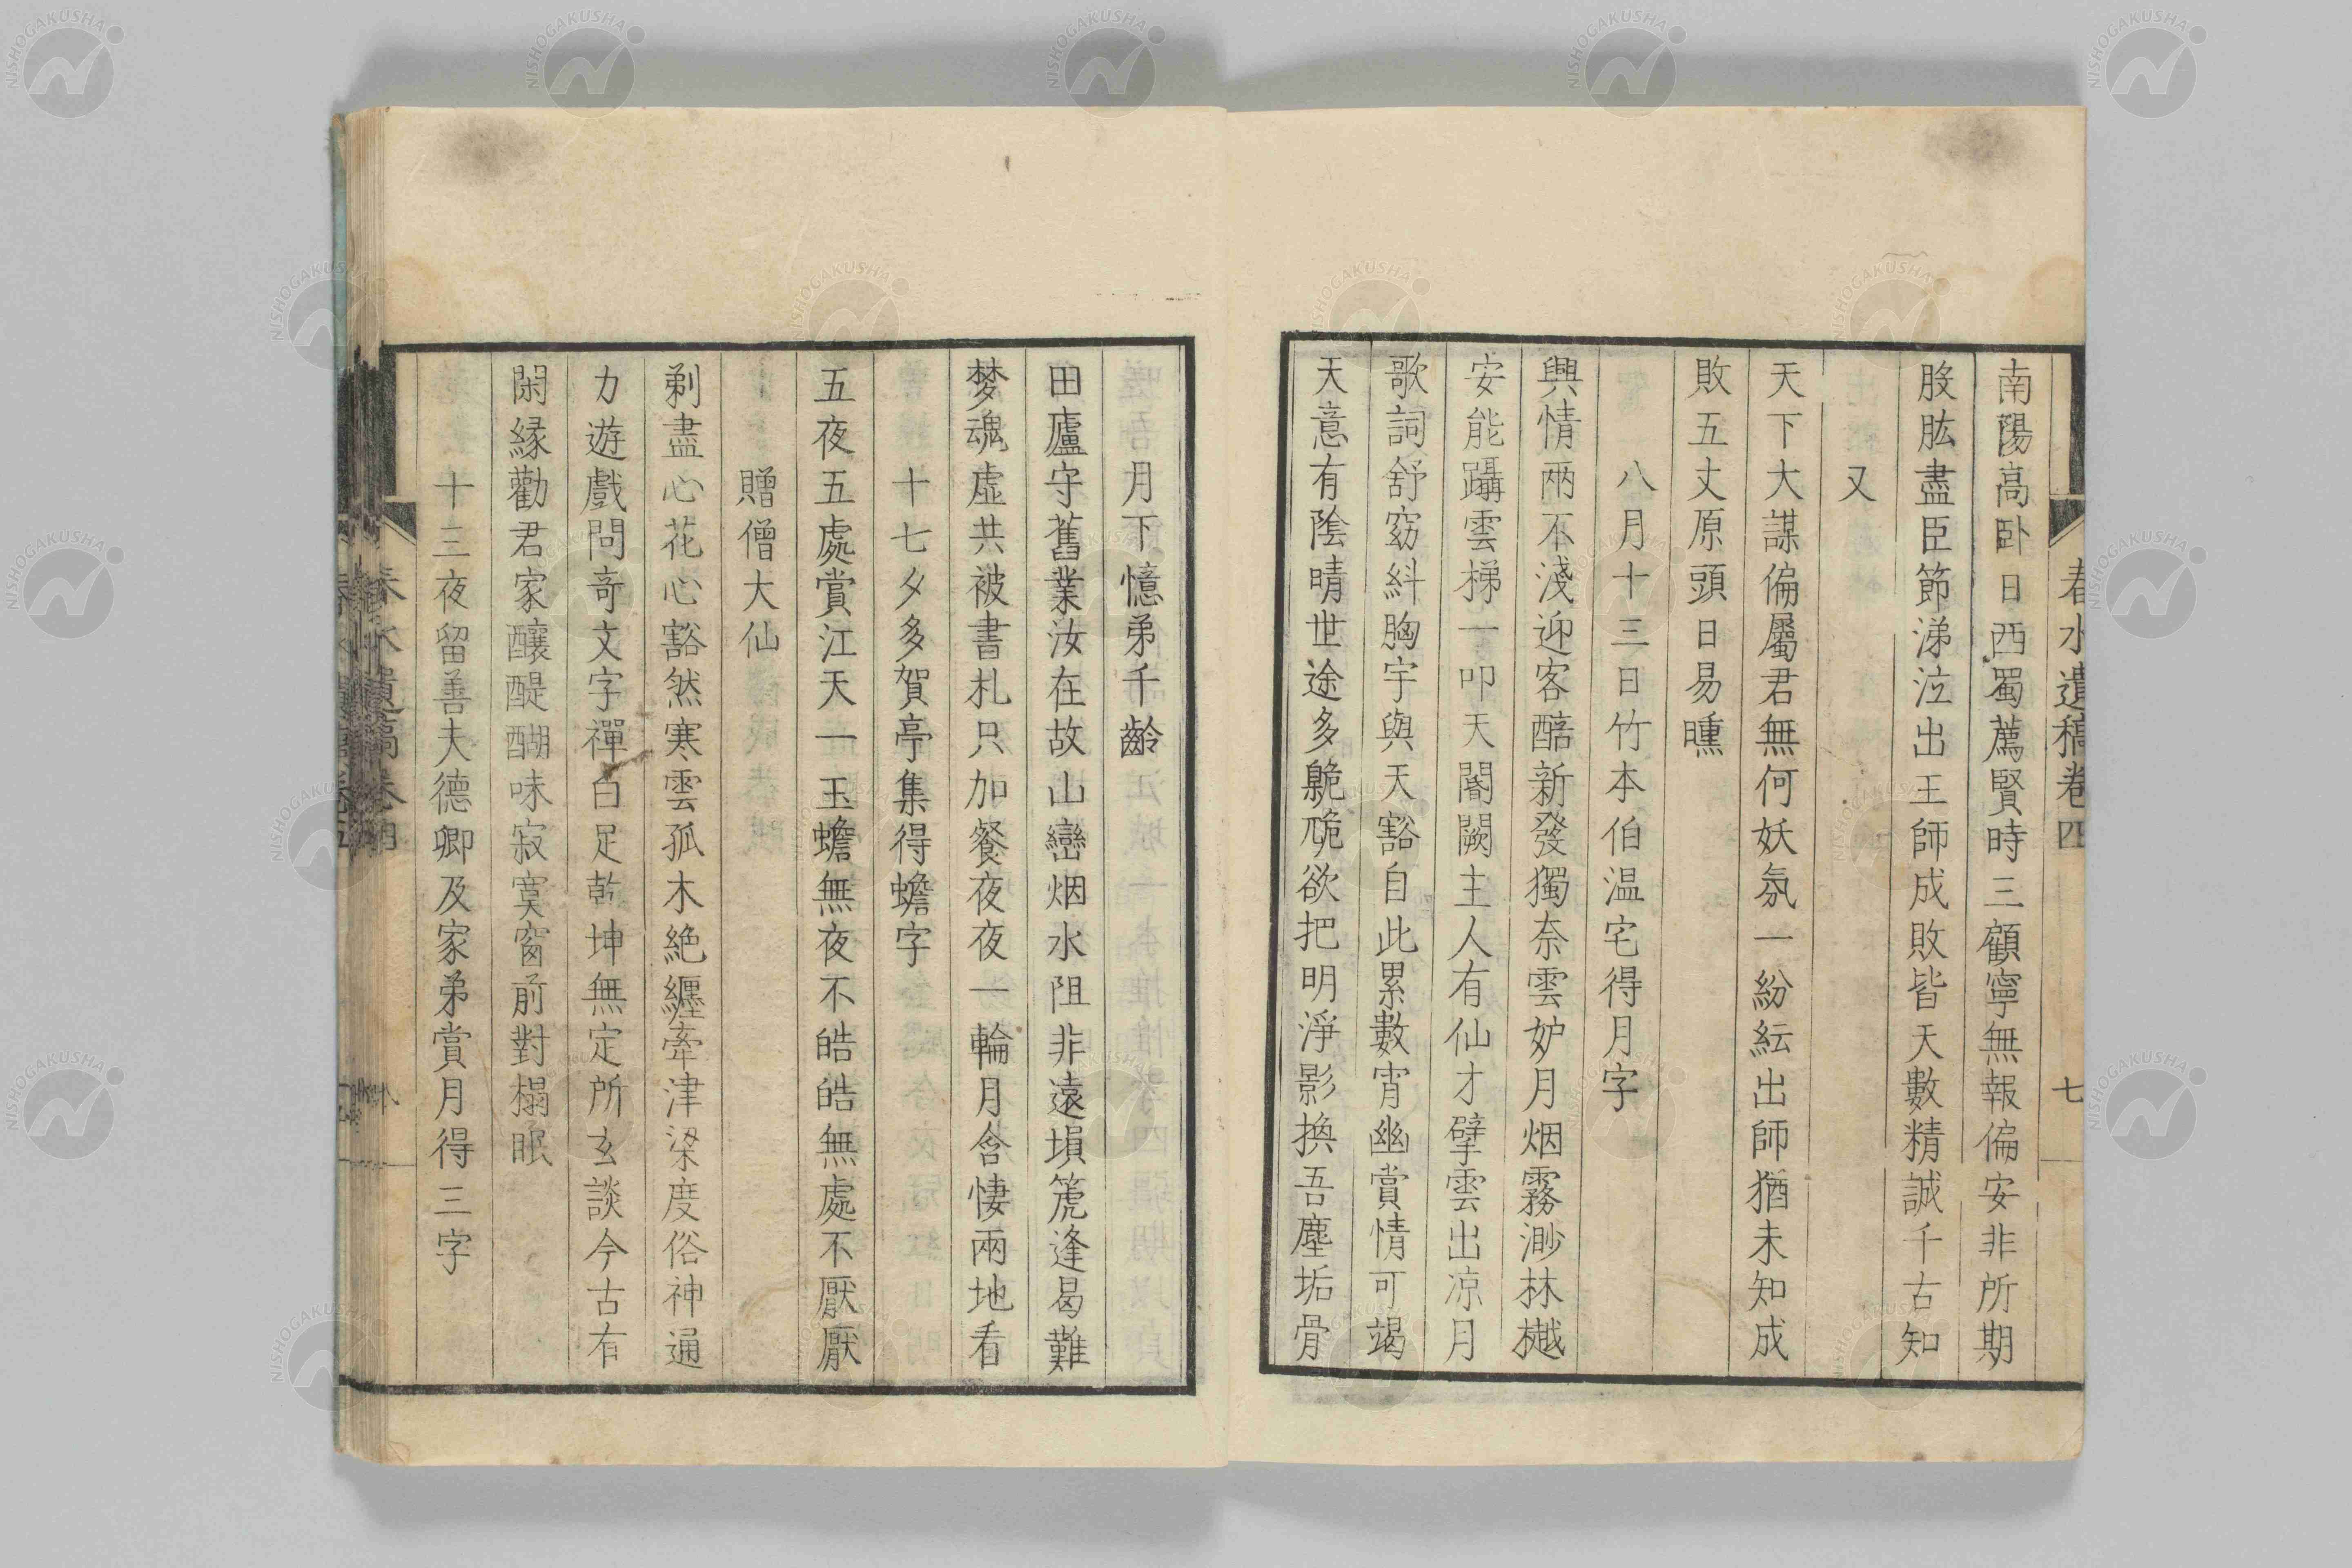 春水遺稿卷四
七
南陽高卧日西蜀薦賢時三顧寧無報偏安非所期
股肱盡臣節涕泣出王師成敗皆天數精誠千古知
又
天下大謀偏屬君無何妖氛一紛紜出師猶未知成
敗五丈原頭日易曛
八月十三日竹本伯温宅得月字
興情兩不淺迎客醅新發獨奈雲妒月烟霧渺林樾
安能躡雲梯一叩天閽闕主人有仙才擘雲出凉月
歌詞舒窈糾胸宇與天豁自此累數宵幽賞情可竭
天意有陰晴世途多臲卼欲把明淨影換吾塵垢骨
月下憶弟千齡
田廬守舊業汝在故山巒烟水阻非遠塤篪逢曷難
梦魂虚共被書札只加餐夜夜一輪月含悽兩地看
十七夕多賀亭集得蟾字
五夜五處賞江天一玉蟾無夜不皓皓無處不厭厭
贈僧大仙
剃盡心花心豁然寒雲孤木絶纏牽津梁度俗神通
力遊戲問奇文字禪白足乾坤無定所玄談今古有
閑縁勸君家釀醍醐味寂寞窗前對榻眠
十三夜留善夫德卿及家弟賞月得三字
NISHOGAKUSHA